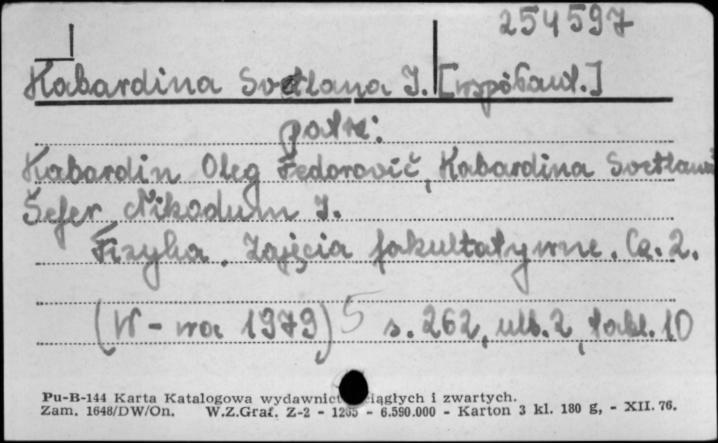 254597
Kabardina Svetlana I. [współaut.]
patrz:
Kabardin Oleg Fedorovič, Kabardina Svetłana
Šefer Nikodim I.
Fizyka. Zajęcia fakultatywne. Cz. 2.
(W-wa 1979) 5 s. 262, ulb. 2, tabl. 10
Pu-B-144 Karta Katalogowa wydawnict ciągłych i zwartych.
Zam. 1648/DW/On. W.Z.Graf. Z-2 - 1265 - 6.590.000 - Karton 3 kl. 180 g, - XII. 76.